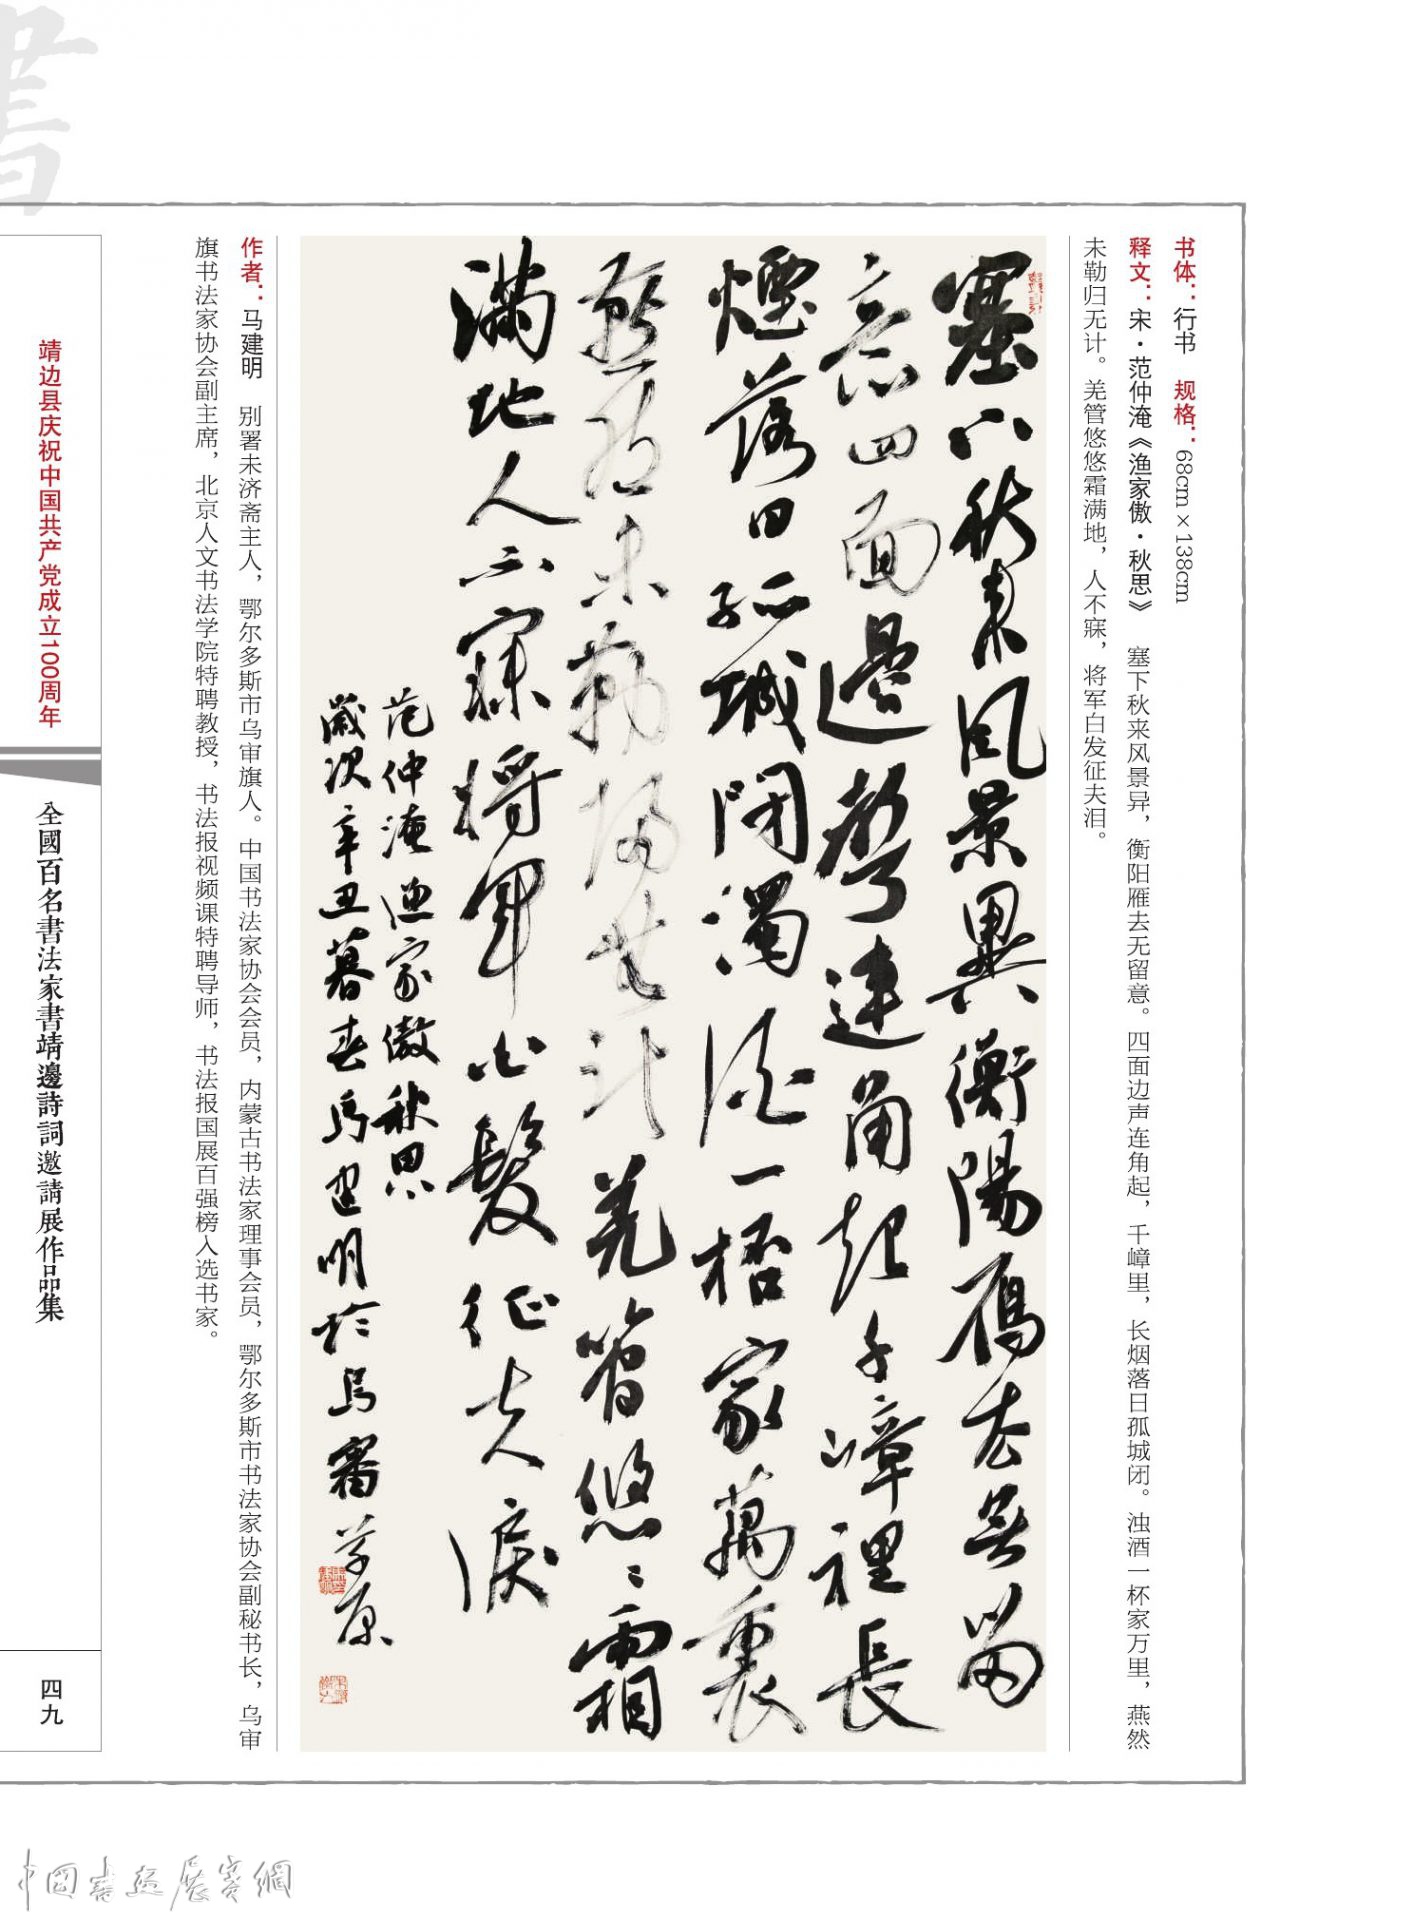 書
书体：行书 规格：68cm×138cm
释文：宋·范仲淹《渔家傲·秋思》 塞下秋来风景异，衡阳雁去无留意。四面边声连角起，千嶂里，长烟落日孤城闭。浊酒一杯家万里，燕然
未勒归无计。羌管悠悠霜满地，人不寐，将军白发征夫泪。
塞下秋来風景異衡陽雁去無留
意四面邊聲連角起千嶂裡長
煙落日孤城閉濁酒一杯家萬里
燕然未勒歸無計羌管悠〻霜
滿地人不寐將軍白髮征夫淚
范仲淹渔家傲秋思
歲次辛丑暮春馬建明於烏審草原
作者：马建明 别署未济斋主人，鄂尔多斯市乌审旗人。中国书法家协会会员，内蒙古书法家理事会员，鄂尔多斯市书法家协会副秘书长，乌审
旗书法家协会副主席，北京人文书法学院特聘教授，书法报视频课特聘导师，书法报国展百强榜入选书家。
靖边县庆祝中国共产党成立100周年
全國百名書法家書靖邊詩詞邀請展作品集
四九
中國書畫展賽網